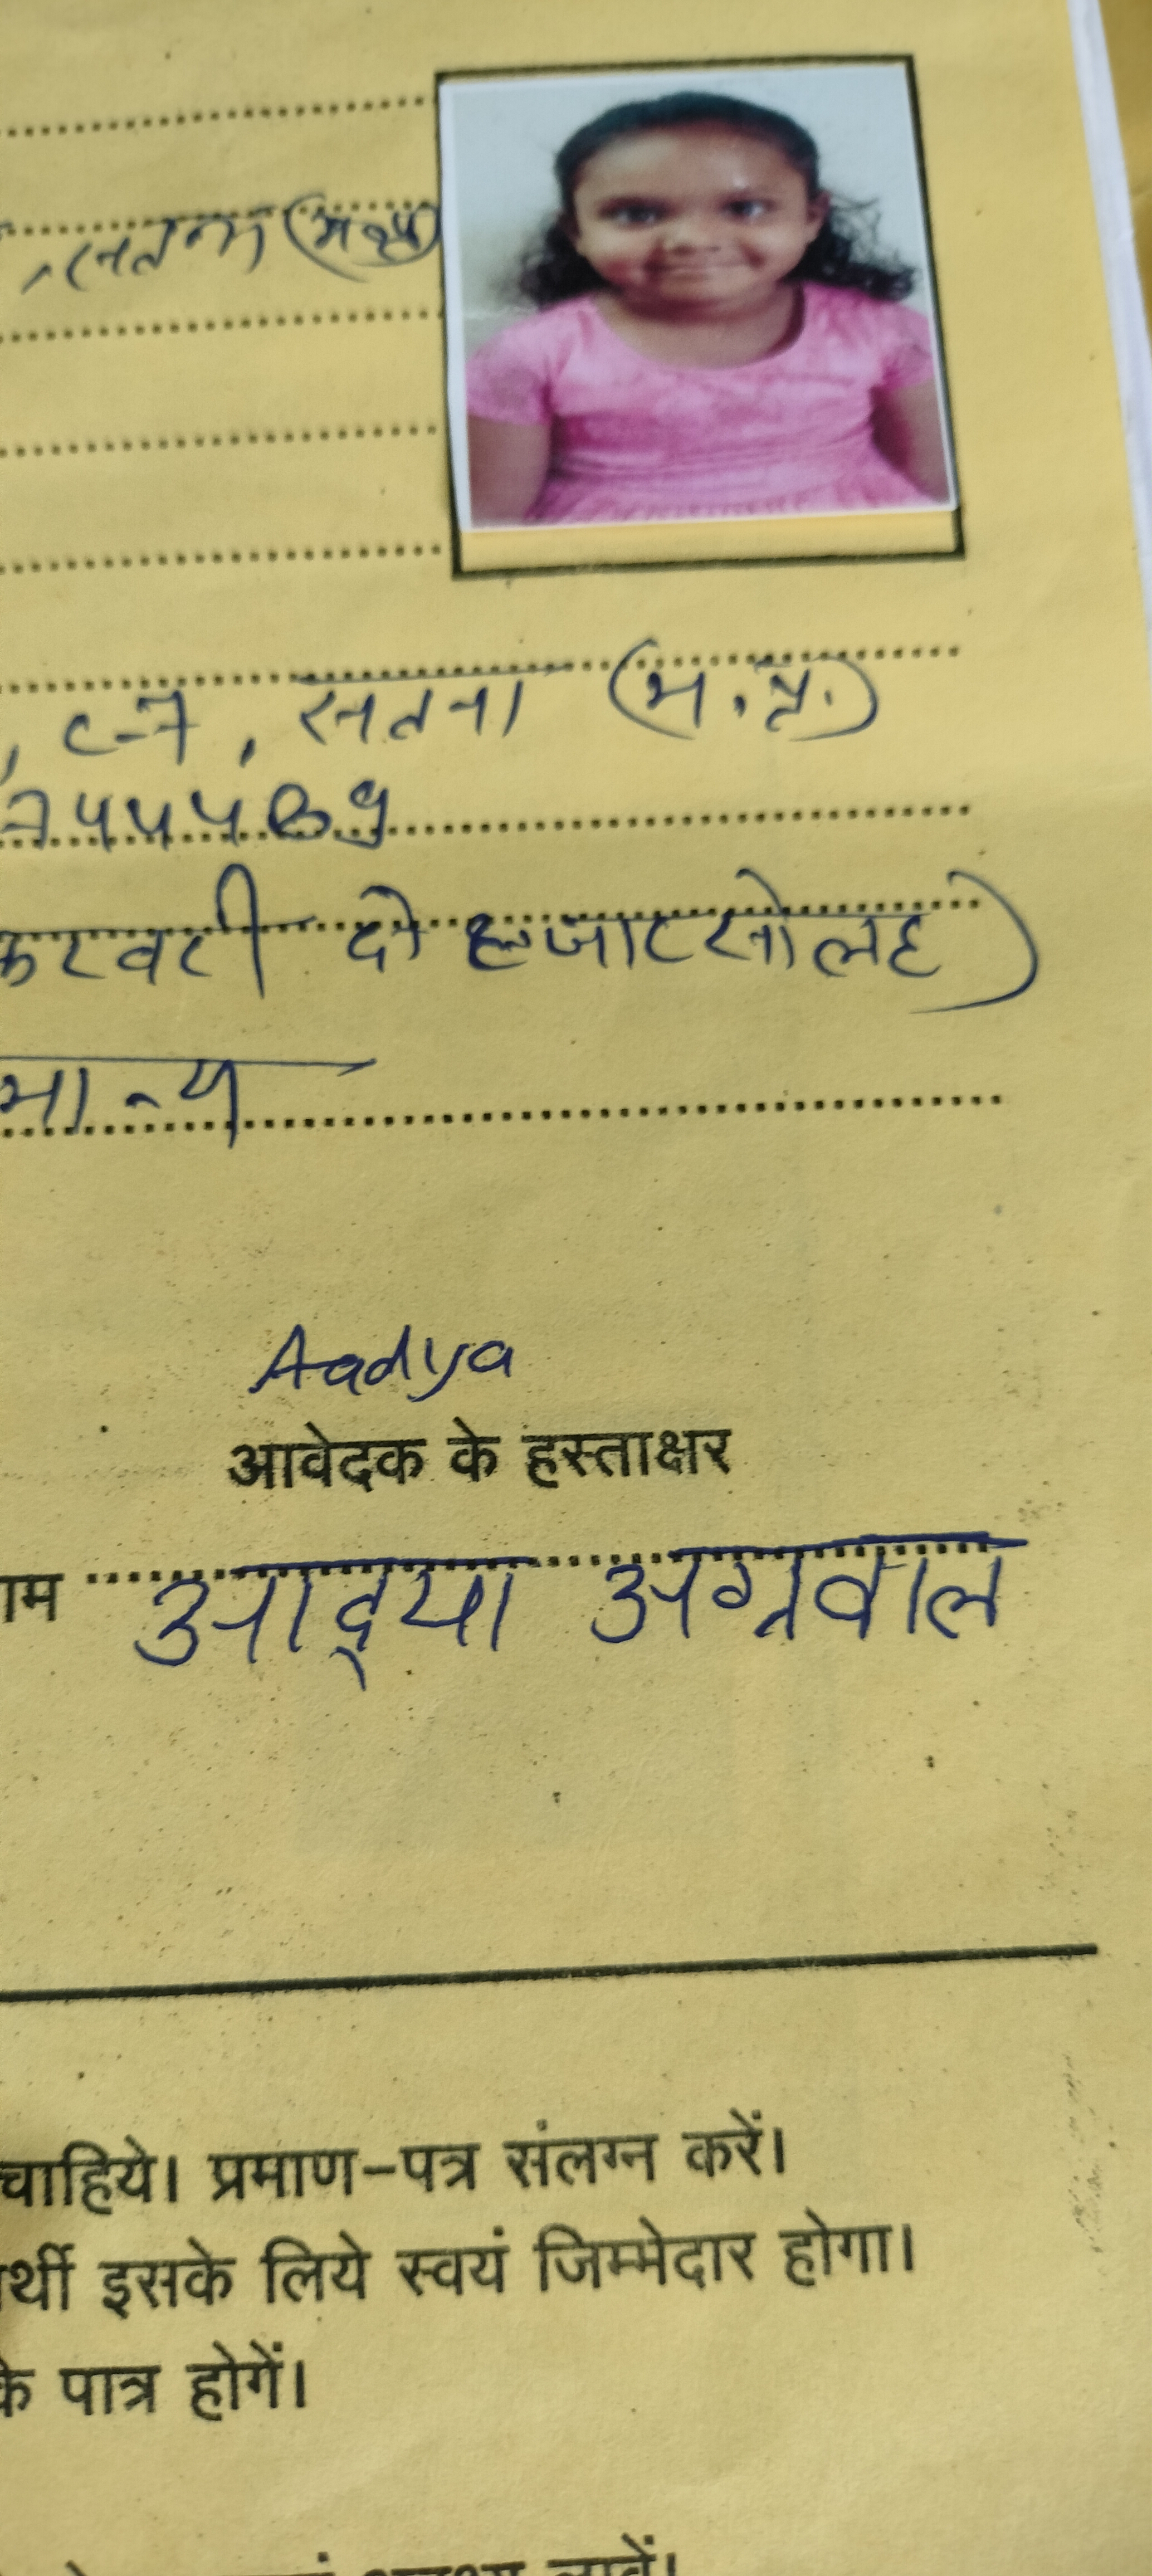 सतना (म.प्र.)
, सतना (म.प्र.)
फरवरी दो हजार सोलह)
मान्य
Aadya
आवेदक के हस्ताक्षर
आद्या अग्रवाल
चाहिये। प्रमाण-पत्र संलग्न करें।
र्थी इसके लिये स्वयं जिम्मेदार होगा।
के पात्र होगें।